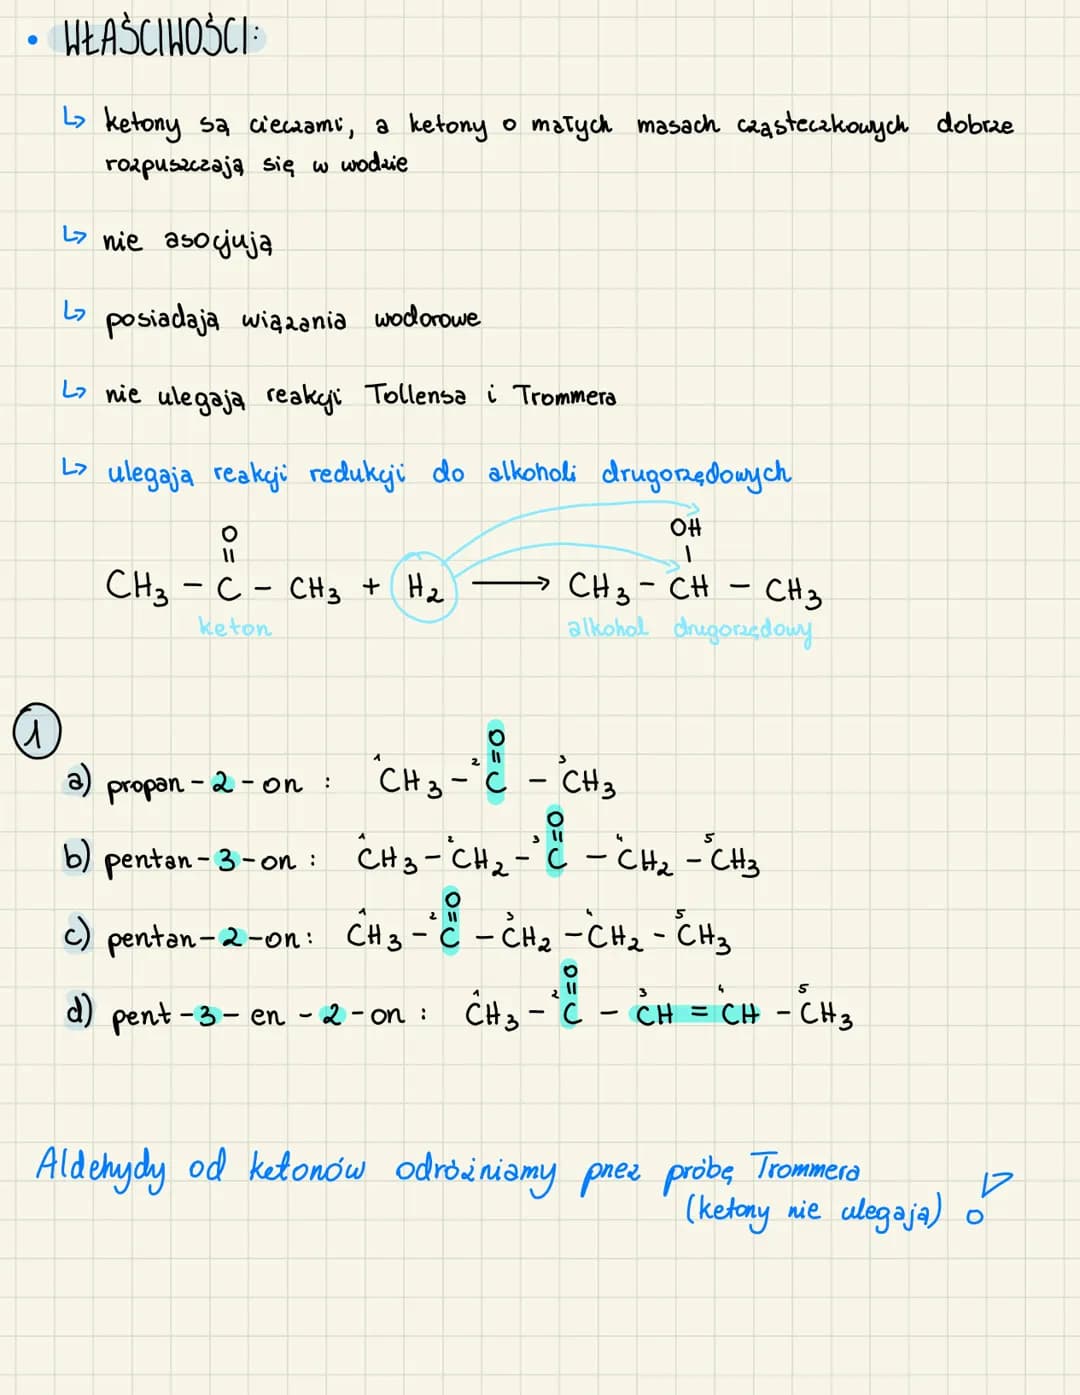 • WŁAŚCIWOŚCI:
↳ ketony są cieczami, a ketony o małych masach cząsteczkowych dobrze
rozpuszczają się w wodzie
↳ nie asocjują
↳ posiadają wiązania wodorowe
↳ nie ulegają reakcji Tollensa i Trommera
↳ ulegają reakcji redukcji do alkoholi drugorzędowych
O OH
|| |
CH3 - C - CH3 + H2 ⟶ CH3 - CH - CH3
keton alkohol drugorzędowy
1
O
a) propan-2-on : ¹CH3 - ²C - ³CH3
O
b) pentan-3-on : ¹CH3 - ²CH2 - ³C - ⁴CH2 - ⁵CH3
O
c) pentan-2-on: ¹CH3 - ²C - ³CH2 - ⁴CH2 - ⁵CH3
O
d) pent-3-en-2-on : ¹CH3 - ²C - ³CH = ⁴CH - ⁵CH3
Aldehydy od ketonów odróżniamy przez próbę Trommera
(ketony nie ulegają) !